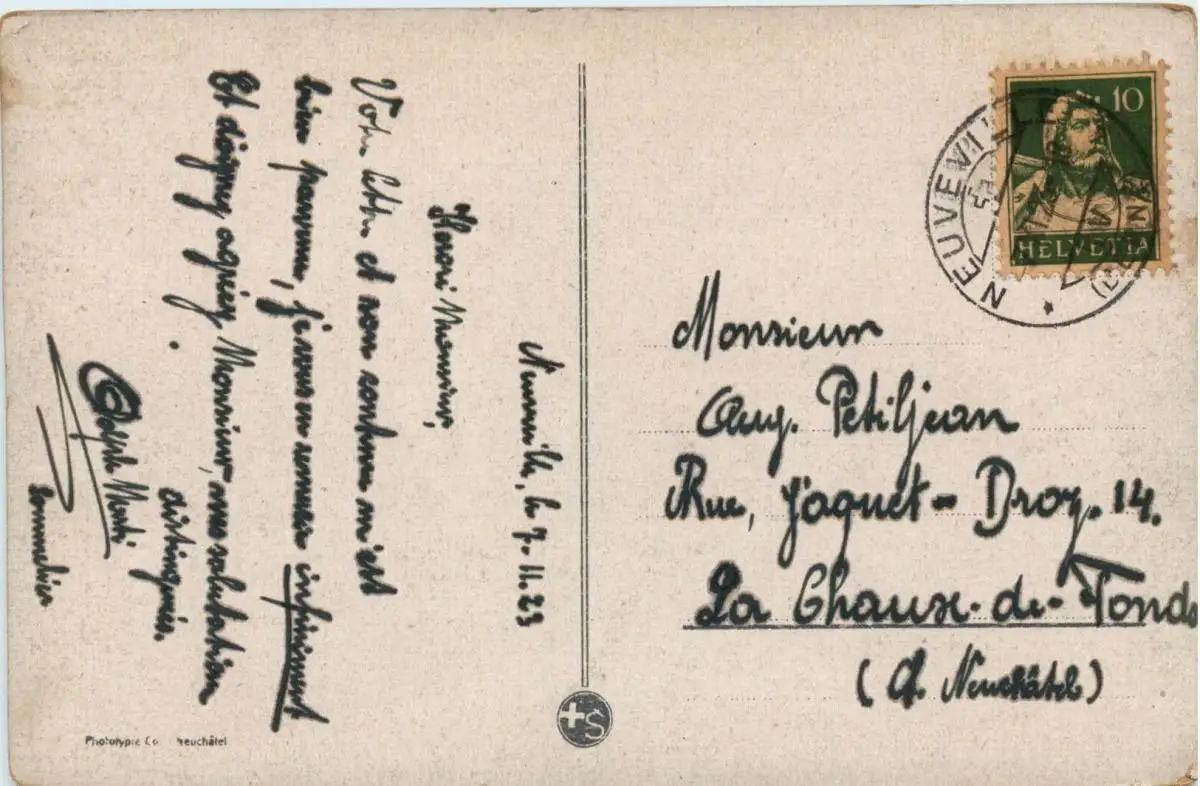 Neuveville, le 7.11.23
Honoré Monsieur,
Votre lettre et son contenu m'est
bien parvenu, je vous en remercie infiniment
Et agréez Monsieur, mes salutations
distinguées.
Adolphe Marti
Sommelier
10
HELVETIA
NEUVEVILLE
(BERN)
Monsieur
Aug. Petitjean
Rue, Jaquet-Droz. 14.
La Chaux-de-Fonds
(Ct. Neuchâtel)
+S
Phototypie Co. Neuchâtel